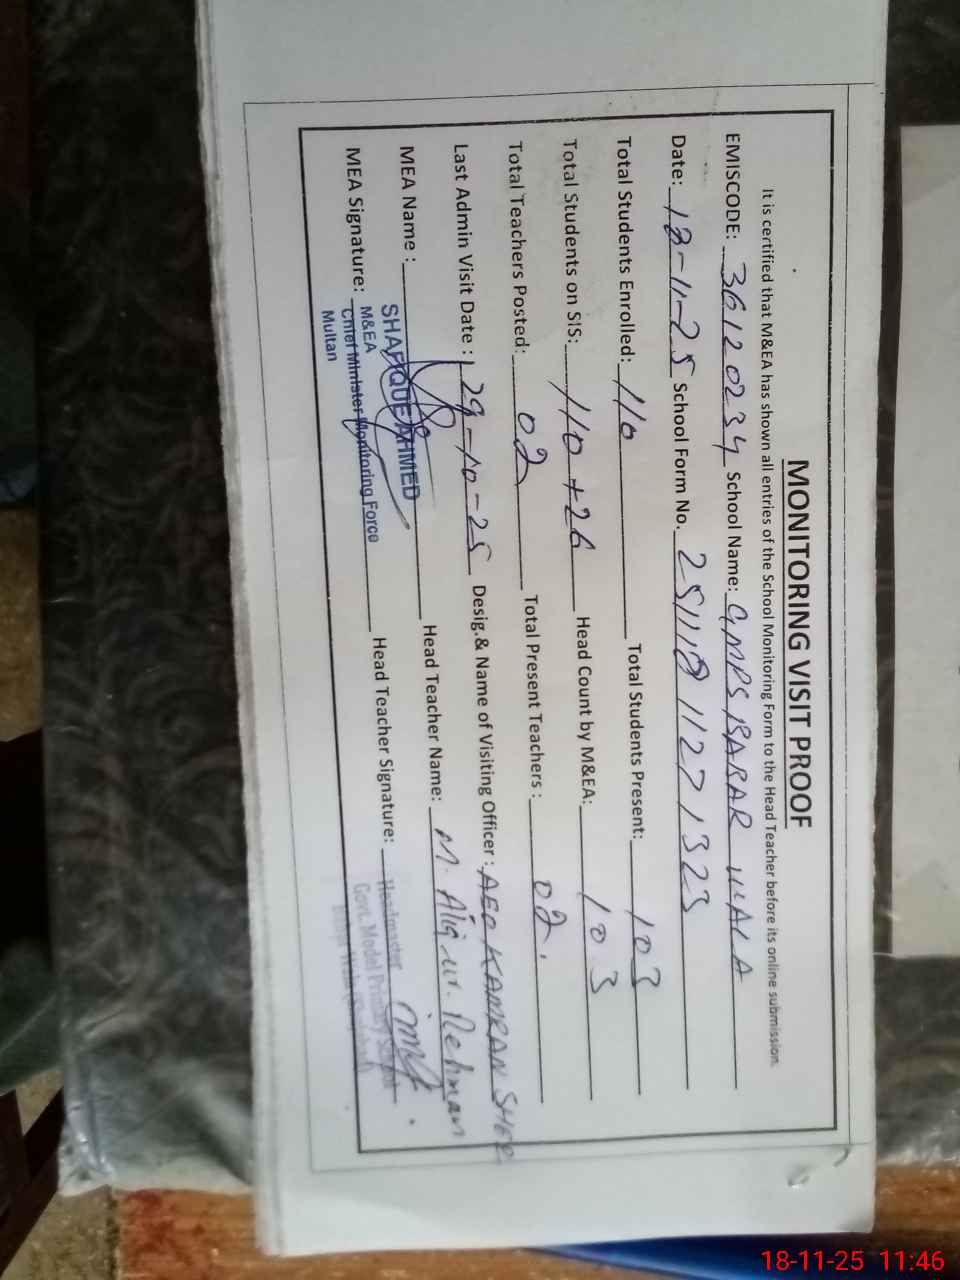 MONITORING VISIT PROOF
It is certified that M&EA has shown all entries of the School Monitoring Form to the Head Teacher before its online submission.
EMISCODE: 36120234 School Name: GMPS BARAR WALA
Date: 18-11-25 School Form No. 251118 1127 1323
Total Students Enrolled: 110 Total Students Present: 103
Total Students on SIS: 110 + 26 Head Count by M&EA: 103
Total Teachers Posted: 02 Total Present Teachers : 02.
Last Admin Visit Date : 29-10-25 Desig.& Name of Visiting Officer : AEO KAMRAN SHER
MEA Name : SHAFIQUE AHMED Head Teacher Name: M. Atiq-ur-Rehman
M&EA
MEA Signature: Chief Minister Monitoring Force Head Teacher Signature: Headmaster
Multan
Govt. Model Primary School
18-11-25 11:46